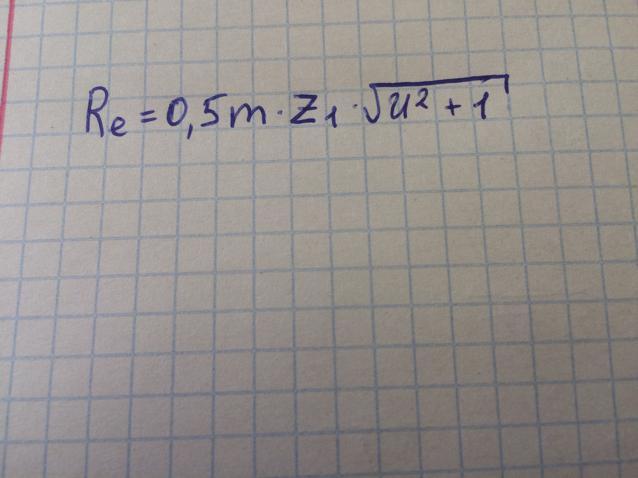 Re = 0,5m · z₁ · √(u² + 1)